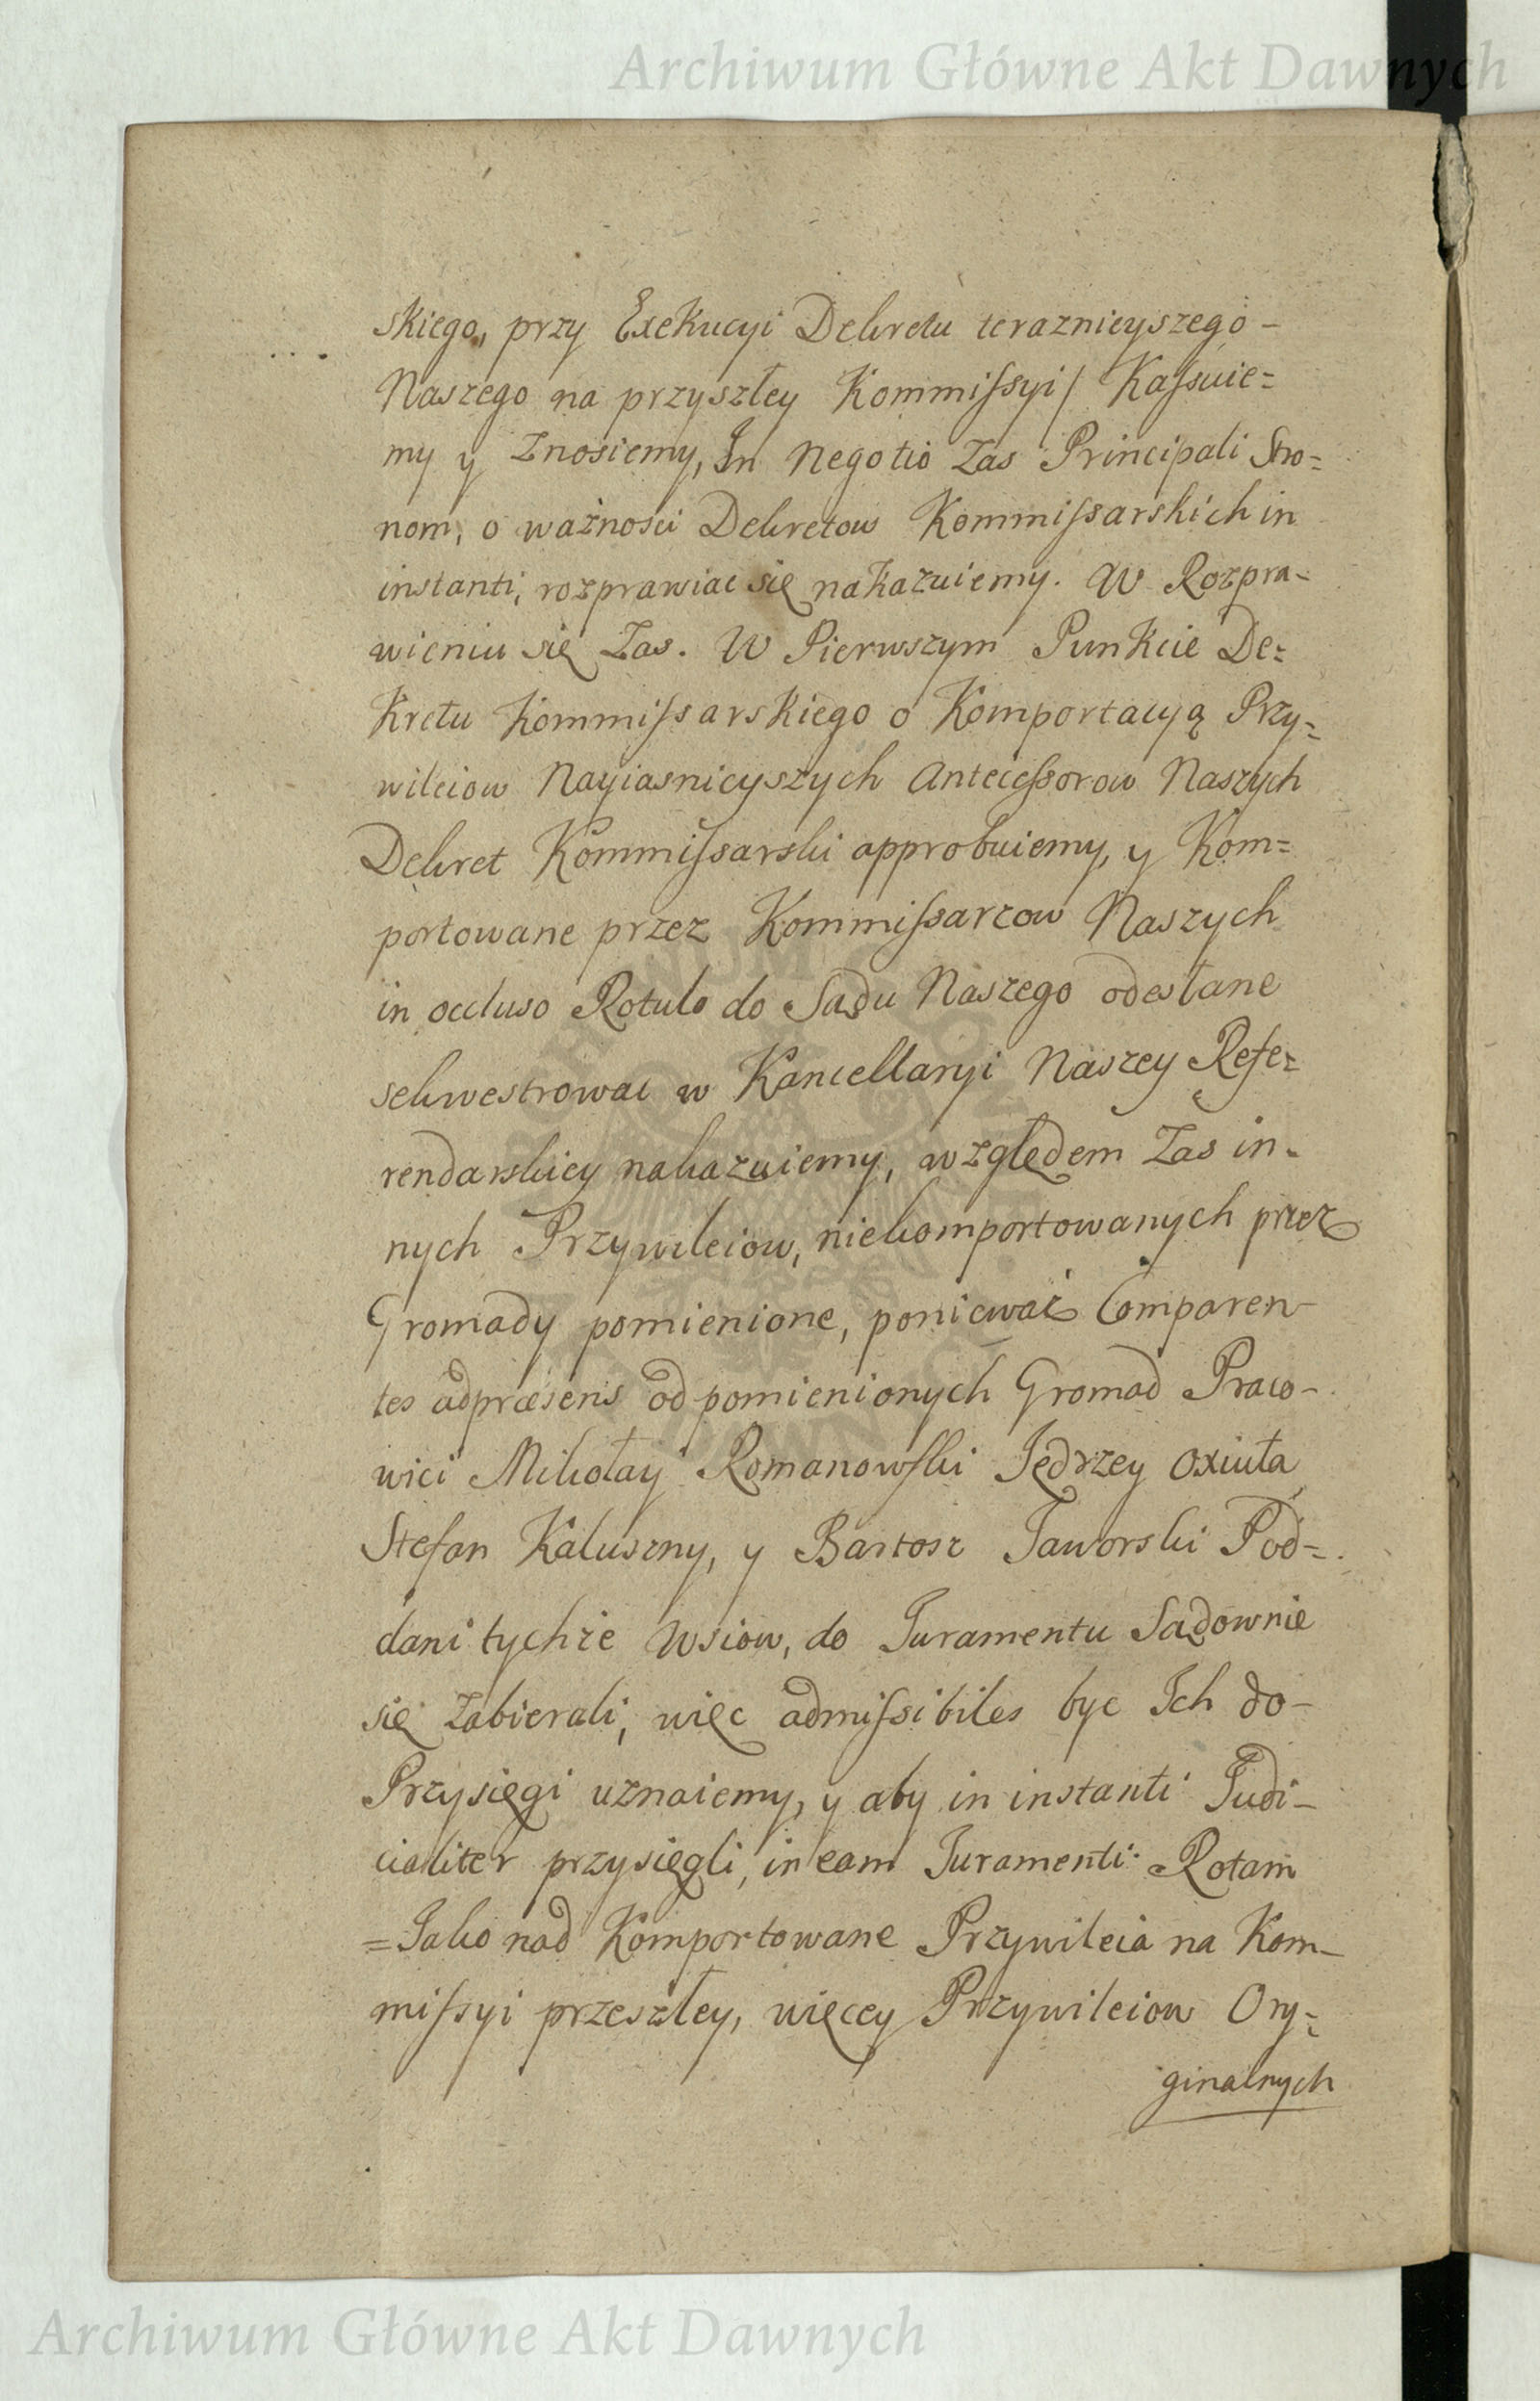 Archiwum Główne Akt Dawnych
skiego, przy Exekucyi Dekretu teraznieyszego –
Naszego na przyszłey Kommissyi / Kassuie=
my y Znosiemy, In Negotio Zas Principali Stro=
nom, o ważnosci Dekretow Kommissarskich in
instanti, rozprawiac się nakazuiemy. W Rozpra-
wieniu się Zas. W Pierwszym Punkcie De=
kretu Kommissarskiego o Komportacyą Przy=
wileiow Nayiasnieyszych Antecessorow Naszych
Dekret Kommissarski approbuiemy, y Kom=
portowane przez Kommissarzow Naszych
in occluso Rotulo do Sądu Naszego odesłane
sekwestrowac w Kancellaryi Naszey Refe=
rendarskiey nakazuiemy, względem Zas in-
nych Przywileiow, niekomportowanych przez
Gromady pomienione, ponieważ Comparen-
tes adpræsens od pomienionych Gromad Praco-
wici Mikołay Romanowski Jędrzey Oxiuta
Stefan Kaluszny, y Bartosz Jaworski Pod=
dani tychże Wsiow, do Juramentu Sądownie
się zabierali, więc admissibiles byc Ich do-
Przysięgi uznaiemy, y aby in instanti Judi-
cialiter przysięgli, in eam Juramenti Rotam
=Jako nad Komportowane Przywileia na Kom-
missyi przeszłey, więcey Przywileiow Ory=
ginalnych
Archiwum Główne Akt Dawnych